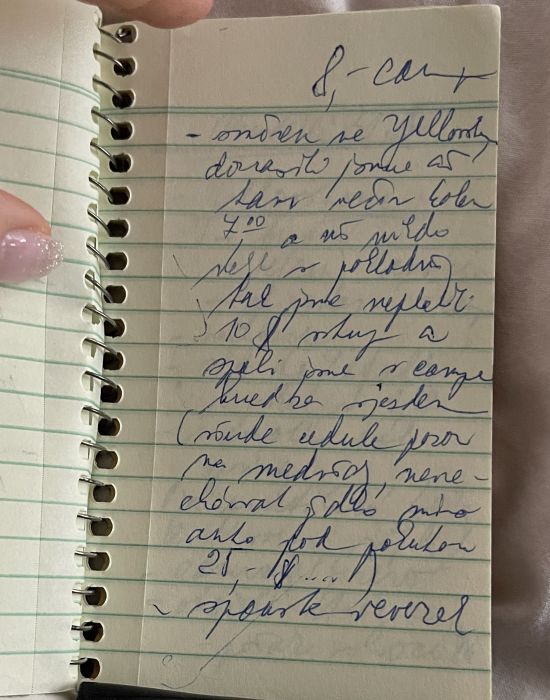 8,- camp
- směrem na Yellowsty
dorazili jsme až
tam večer kolem
7,00 a už nikdo
nebyl v pokladně
tak jsme neplatili
10 $ vstup a
spali jsme v campu
hned za vjezdem
(všude cedule pozor
na medvědy, nene-
chávat jídlo mimo
auto pod pokutou
25,- $ ....)
- spousta veverek